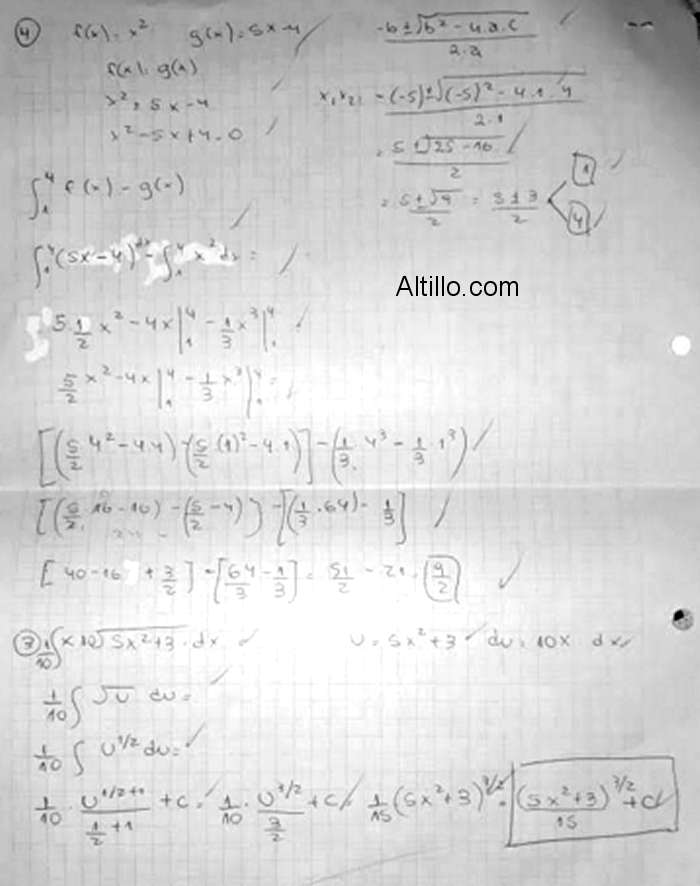 ④ f(x) = x² g(x) = 5x - 4
f(x) = g(x)
x² = 5x - 4
x² - 5x + 4 = 0
∫₁⁴ f(x) - g(x)
-b ± √(b² - 4.a.c) / 2.a
x₁,x₂ = -(-5) ± √((-5)² - 4.1.4) / 2.1
= 5 ± √(25 - 16) / 2
= 5 ± √9 / 2 = 5 ± 3 / 2 < 1
4
∫₁⁴ (5x - 4) dx - ∫₁⁴ x² dx =
Altillo.com
5. 1/2 x² - 4x |₁⁴ - 1/3 x³ |₁⁴
5/2 x² - 4x |₁⁴ - 1/3 x³ |₁⁴ =
[(5/2 4² - 4.4) - (5/2 (1)² - 4.1)] - (1/3 . 4³ - 1/3 . 1³)
[(5/2 . 16 - 16) - (5/2 - 4)] - [(1/3 . 64) - 1/3]
[40 - 16 + 3/2] - [64/3 - 1/3] = 51/2 - 21 = 9/2
③ 1/10 ∫ x 10 √(5x² + 3) . dx U = 5x² + 3 du = 10x . dx
1/10 ∫ √U du =
1/10 ∫ U^(1/2) du =
1/10 . U^(1/2+1) / (1/2 + 1) + C = 1/10 . U^(3/2) / (3/2) + C = 1/15 (5x² + 3)^(3/2) = (5x² + 3)^(3/2) / 15 + C